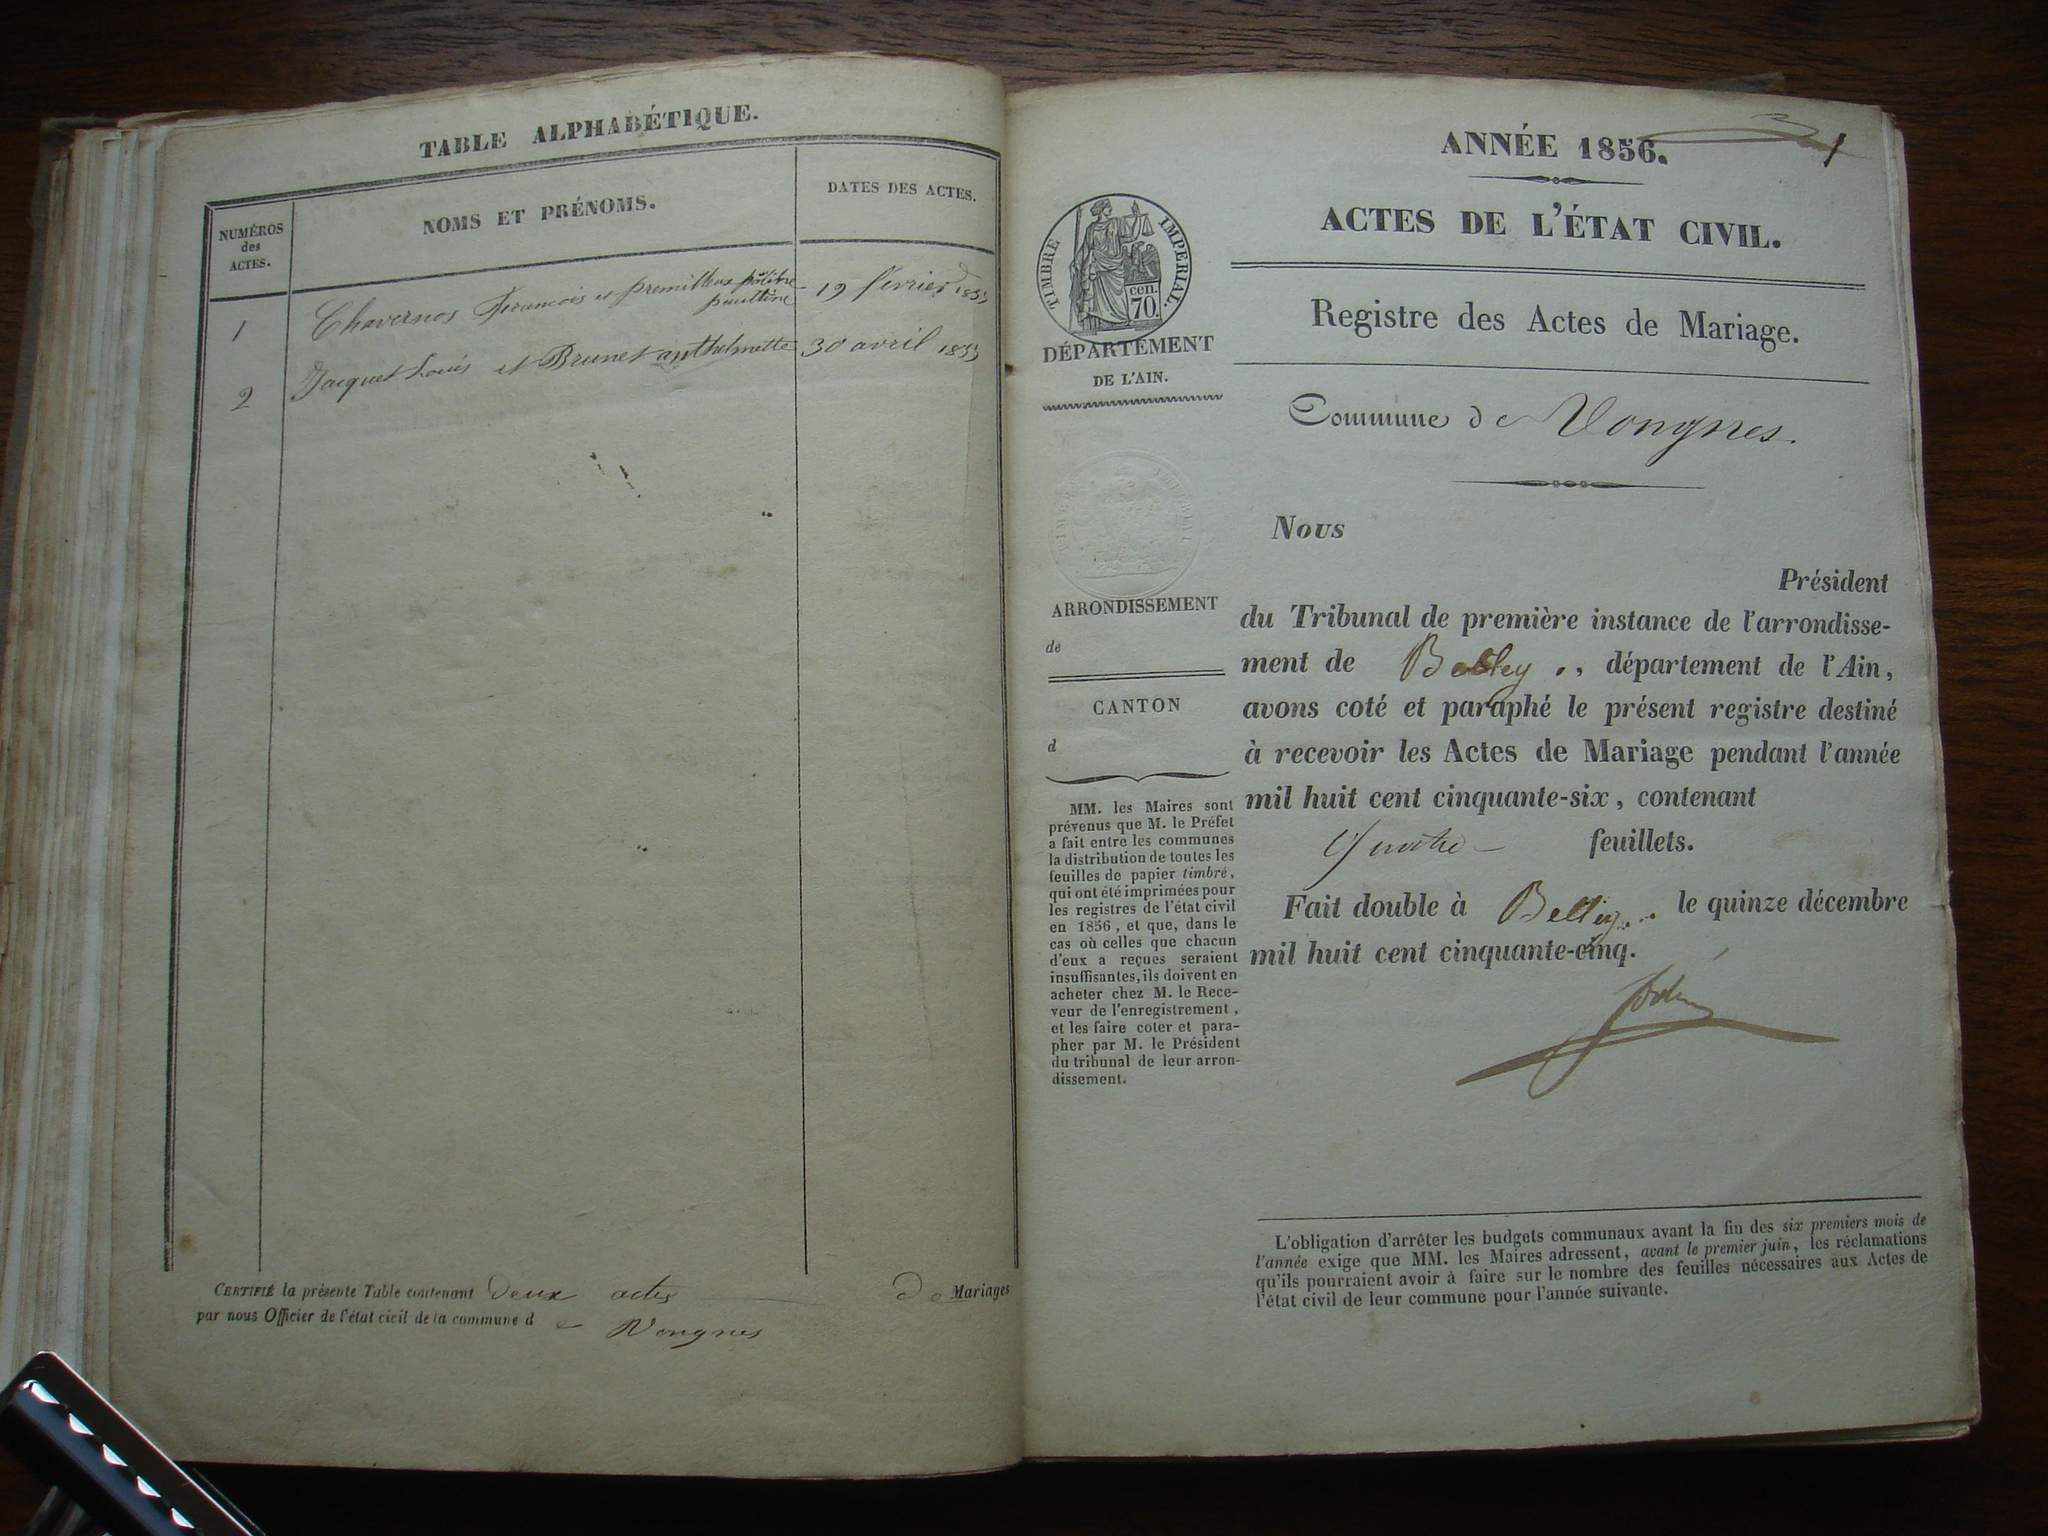 TABLE ALPHABÉTIQUE.
NUMÉROS
des
ACTES.
NOMS ET PRÉNOMS.
DATES DES ACTES.
1 Chavernos François et premillieux
paultine
19 février 1855
2 Jacquet Louis et Brunet anthelmette 30 avril 1855
CERTIFIÉ la présente Table contenant deux actes de Mariages
par nous Officier de l'état civil de la commune d e Vongnes
ANNÉE 1856.
1
ACTES DE L'ÉTAT CIVIL.
TIMBRE IMPERIAL.
cen.
70.
Registre des Actes de Mariage.
DÉPARTEMENT
DE L'AIN.
Commune de Vongnes.
ARRONDISSEMENT
de
CANTON
d
MM. les Maires sont
prévenus que M. le Préfet
a fait entre les communes
la distribution de toutes les
feuilles de papier timbré,
qui ont été imprimées pour
les registres de l'état civil
en 1856, et que, dans le
cas où celles que chacun
d'eux a reçues seraient
insuffisantes, ils doivent en
acheter chez M. le Rece-
veur de l'enregistrement,
et les faire coter et para-
pher par M. le Président
du tribunal de leur arron-
dissement.
Nous
Président
du Tribunal de première instance de l'arrondisse-
ment de Belley, département de l'Ain,
avons coté et paraphé le présent registre destiné
à recevoir les Actes de Mariage pendant l'année
mil huit cent cinquante-six, contenant
Quatre feuillets.
Fait double à Belley le quinze décembre
mil huit cent cinquante-cinq.
L'obligation d'arrêter les budgets communaux avant la fin des six premiers mois de
l'année exige que MM. les Maires adressent, avant le premier juin, les réclamations
qu'ils pourraient avoir à faire sur le nombre des feuilles nécessaires aux Actes de
l'état civil de leur commune pour l'année suivante.